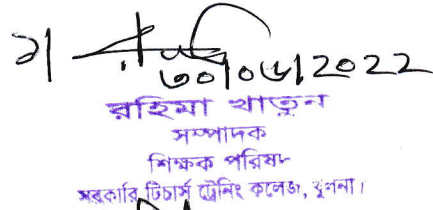 ১। 
৩০/০৬/2022
রহিমা খাতুন
সম্পাদক
শিক্ষক পরিষদ
সরকারি টিচার্স ট্রেনিং কলেজ, খুলনা।